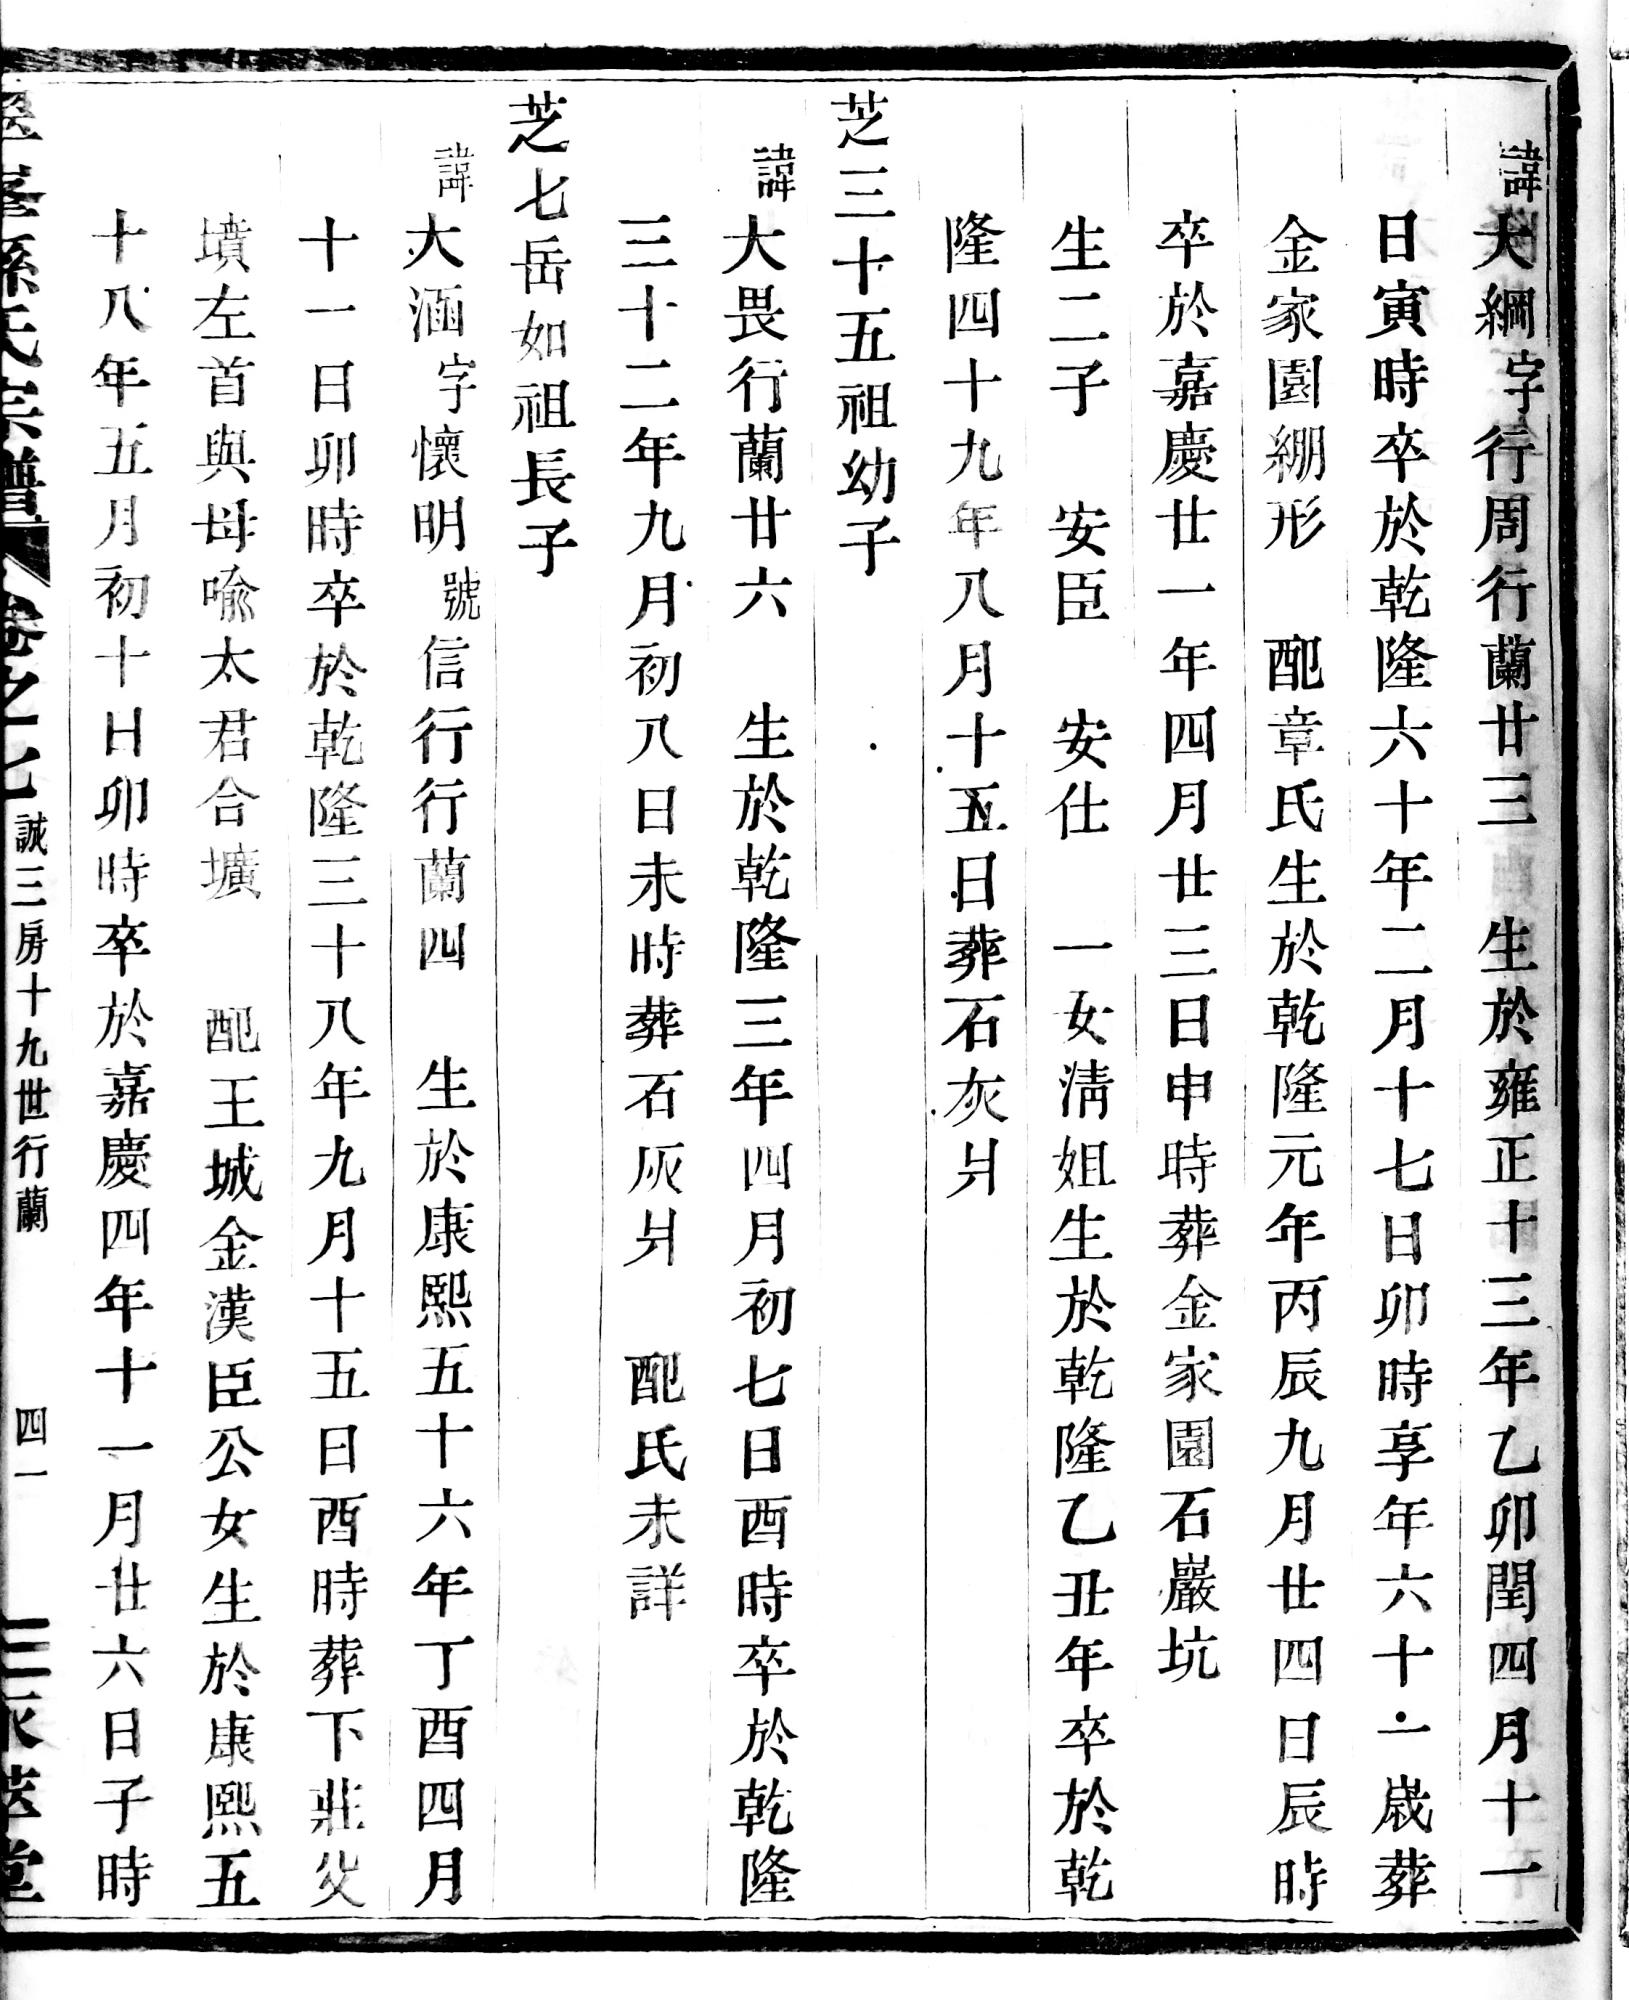 諱大綱字行周行蘭廿三　生於雍正十三年乙卯閏四月十一
日寅時卒於乾隆六十年二月十七日卯時享年六十一歲葬
金家園綳形　配章氏生於乾隆元年丙辰九月廿四日辰時
卒於嘉慶廿一年四月廿三日申時葬金家園石巖坑
生二子　安臣　安仕　一女淸姐生於乾隆乙丑年卒於乾
隆四十九年八月十五日葬石灰爿
芝三十五祖幼子
諱大畏行蘭廿六　生於乾隆三年四月初七日酉時卒於乾隆
三十二年九月初八日未時葬石灰爿　配氏未詳
芝七岳如祖長子
諱大涵字懷明號信行行蘭四　生於康熙五十六年丁酉四月
十一日卯時卒於乾隆三十八年九月十五日酉時葬下莊父
墳左首與母喩太君合壙　配王城金漢臣公女生於康熙五
十八年五月初十日卯時卒於嘉慶四年十一月廿六日子時
孫氏宗譜　卷之七　誠三房十九世行蘭　四一　萃堂